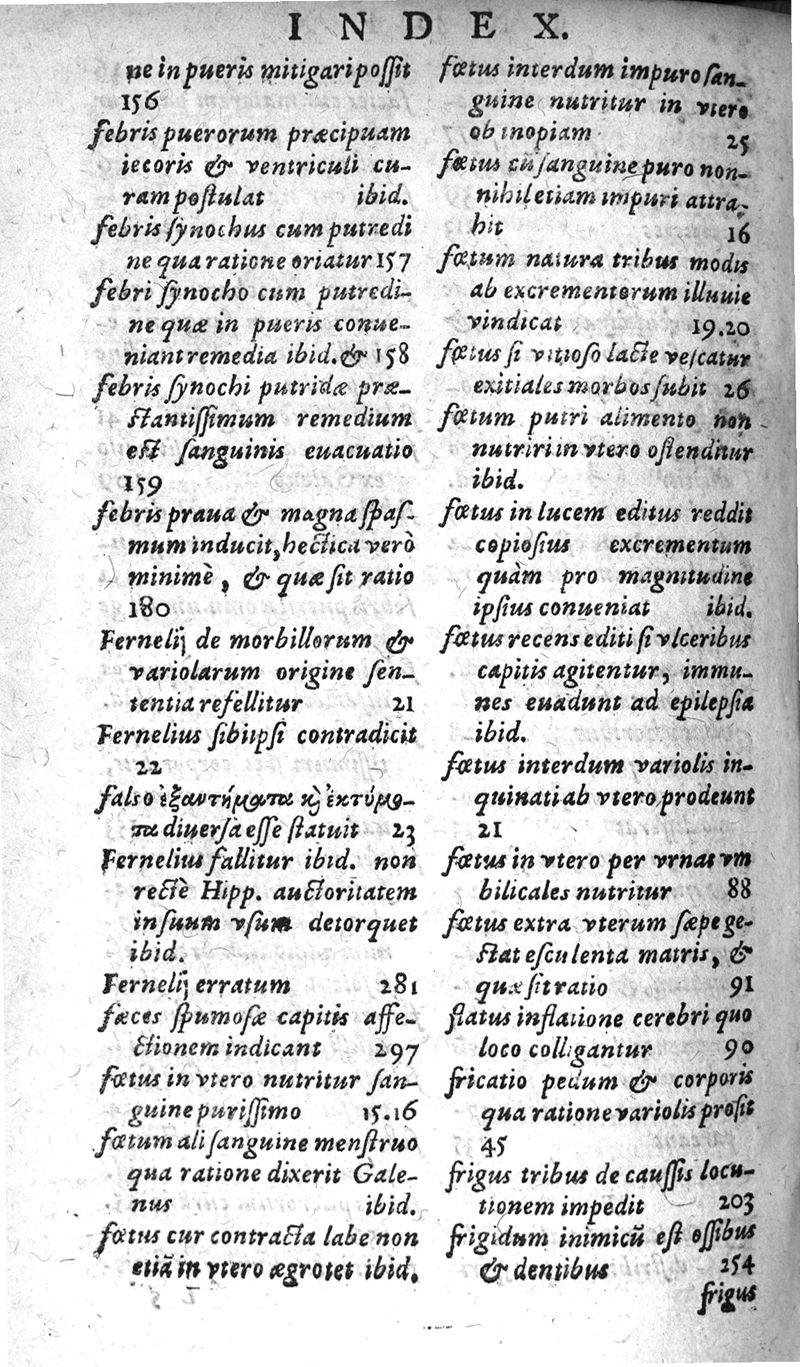 INDEX.
ne in pueris mitigari poſſit
156
febris puerorum præcipuam
iecoris & ventriculi cu-
ram poſtulat ibid.
febris ſynochus cum putredi
ne qua ratione oriatur 157
febri ſynocho cum putredi-
ne quæ in pueris conue-
niant remedia ibid. & 158
febris ſynochi putridæ præ-
ſtantiſſimum remedium
eſt ſanguinis euacuatio
159
febris praua & magna ſpaſ-
mum inducit, hectica verò
minimè, & quæ ſit ratio
180
Fernelij de morbillorum &
variolarum origine ſen-
tentia refellitur 21
Fernelius ſibiipſi contradicit
22
falso ἐξαντήματα κὶ ἐκτύμα-
τα diuerſa eſſe ſtatuit 23
Fernelius fallitur ibid. non
rectè Hipp. auctoritatem
in ſuum vſum detorquet
ibid.
Fernelij erratum 281
fæces ſpumoſæ capitis affe-
ctionem indicant 297
fœtus in vtero nutritur ſan-
guine puriſſimo 15.16
fœtum ali ſanguine menſtruo
qua ratione dixerit Gale-
nus ibid.
fœtus cur contracta labe non
etiã in vtero ægrotet ibid.
fœtus interdum impuro ſan-
guine nutritur in vtero
ob inopiam 25
fœtus cũ ſanguine puro non-
nihil etiam impuri attra-
hit 16
fœtum natura tribus modis
ab excrementorum illuuie
vindicat 19.20
fœtus ſi vitioſo lacte veſcatur
exitiales morbos ſubit 26
fœtum putri alimento non
nutriri in vtero oſtenditur
ibid.
fœtus in lucem editus reddit
copioſius excrementum
quàm pro magnitudine
ipſius conueniat ibid.
fœtus recens editi ſi vlceribus
capitis agitentur, immu-
nes euadunt ad epilepſia
ibid.
fœtus interdum variolis in-
quinati ab vtero prodeunt
21
fœtus in vtero per vrnas vm
bilicales nutritur 88
fœtus extra vterum ſæpe ge-
ſtat eſculenta matris, &
quæ ſit ratio 91
flatus inflatione cerebri quo
loco colligantur 90
fricatio pedum & corporis
qua ratione variolis proſit
45
frigus tribus de cauſſis locu-
tionem impedit 203
frigidum inimicũ eſt oſſibus
& dentibus 254
frigus